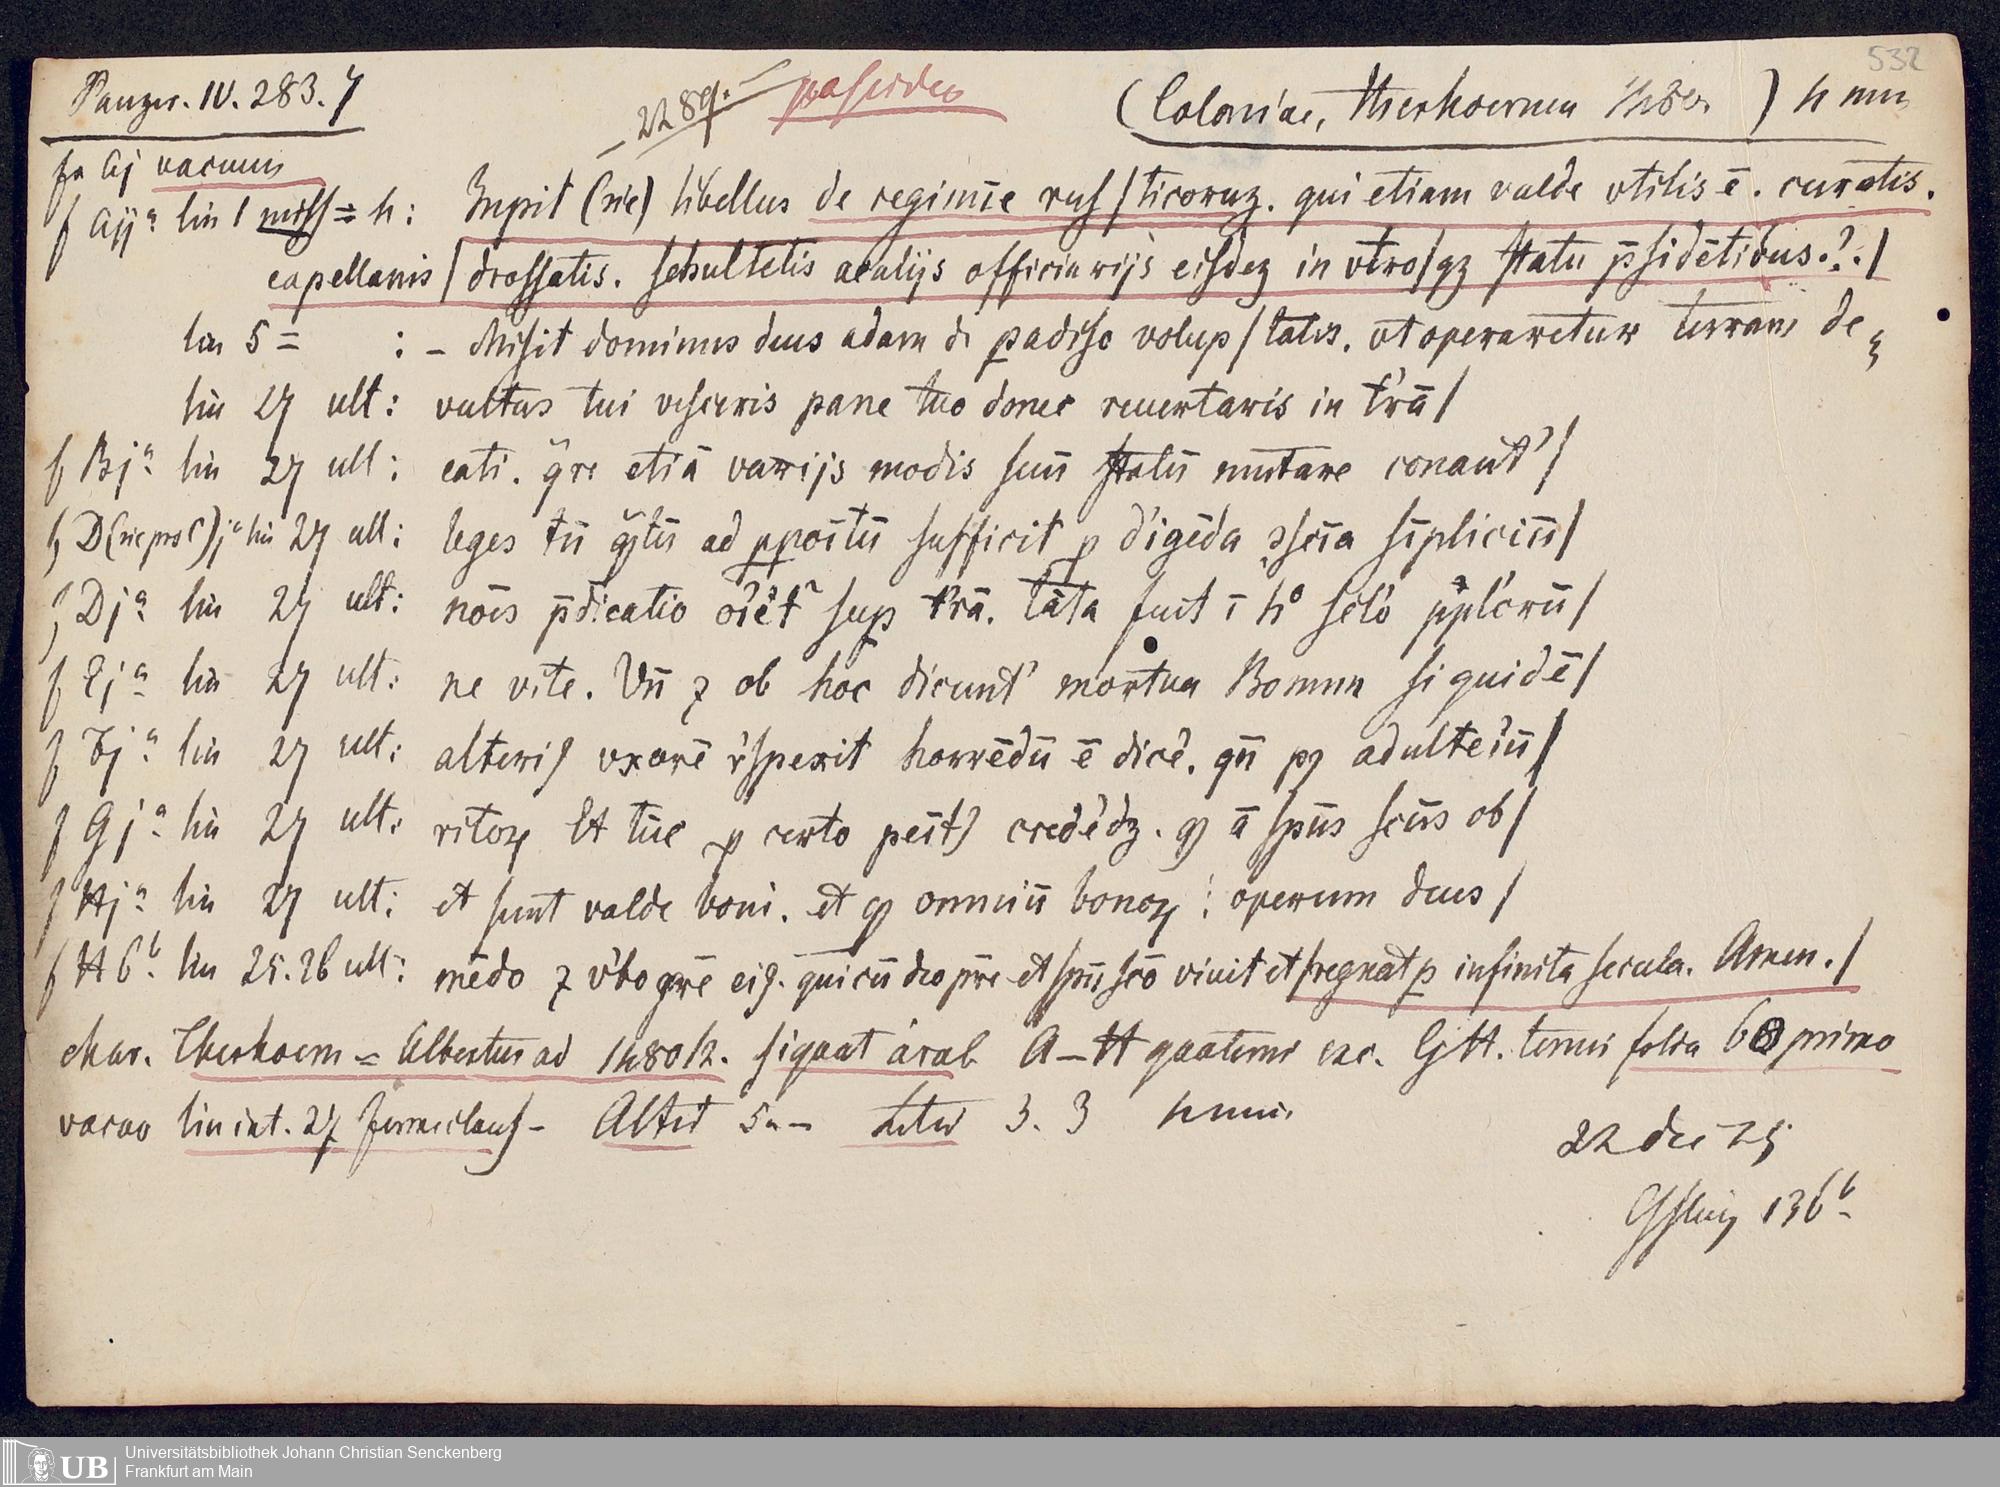 532
Panzer. IV. 283. 7
2289. possideo
(Coloniae, therhoernen 1480 ) 4 min
fo Aj vacuum
f Aijª lin 1 miss = 4 : Inpit (sic) libellus de regimīe rus / ticoruz. qui etiam valde vtilis ē. curatis.
capellanis / drossatis. schultetis acalijs officiarijs eisdez in vtro/qz statu p̄sidētibus.?. /
lin 5 = : – Misit dominus deus adam di padiso volup / tatis. vt operaretur terram de
lin 27 ult : vultus tui vesceris pane tuo donec reuertaris in t'rā /
f Bjª lin 27 ult : cati. q̄re etiā varijs modis suū statū mutare conant' /
f D (sic pro C) jª lin 27 ult : leges tn̄ q̄tū ad ppoītū sufficit p d'igēda ꝯscīa sīpliciū /
f Djª lin 27 ult : noīs p̄dicatio sup t'rā. tāta fuit ī h° sc'lo
f Ejª lin 27 ult : ne vite. Vn̄ ꝫ ob hoc dicunt' mortua Bonum siquidē /
f Fjª lin 27 ult : alteriꝰ vxorē r'spexit horrēdū ē dicē. qn̄ pꝰ adulte'iū /
f Gjª lin 27 ult : ritoꝝ Et tūc p certo credēdz. ꝙ ā spūs scūs ob /
f Hjª lin 27 ult : et sunt valde boni. et ꝙ omniū bonoꝝ : operum deus /
f H 6ᵇ lin 25. 26 ult : mēdo ꝫ v'bo eiꝰ. qui cū deo pr̄e et spū scō viuit et / regnat p infinita secula. Amen. /
char. Therhoern = Albertus ad 1480/2. signat arab A – H quaterni exc. G H. terni folia 60 primo
vacuo lin int. 27 – Altit 5" – Latit 3. 3 4 min
22 dec 25
136ᵇ
Universitätsbibliothek Johann Christian Senckenberg
Frankfurt am Main
UB